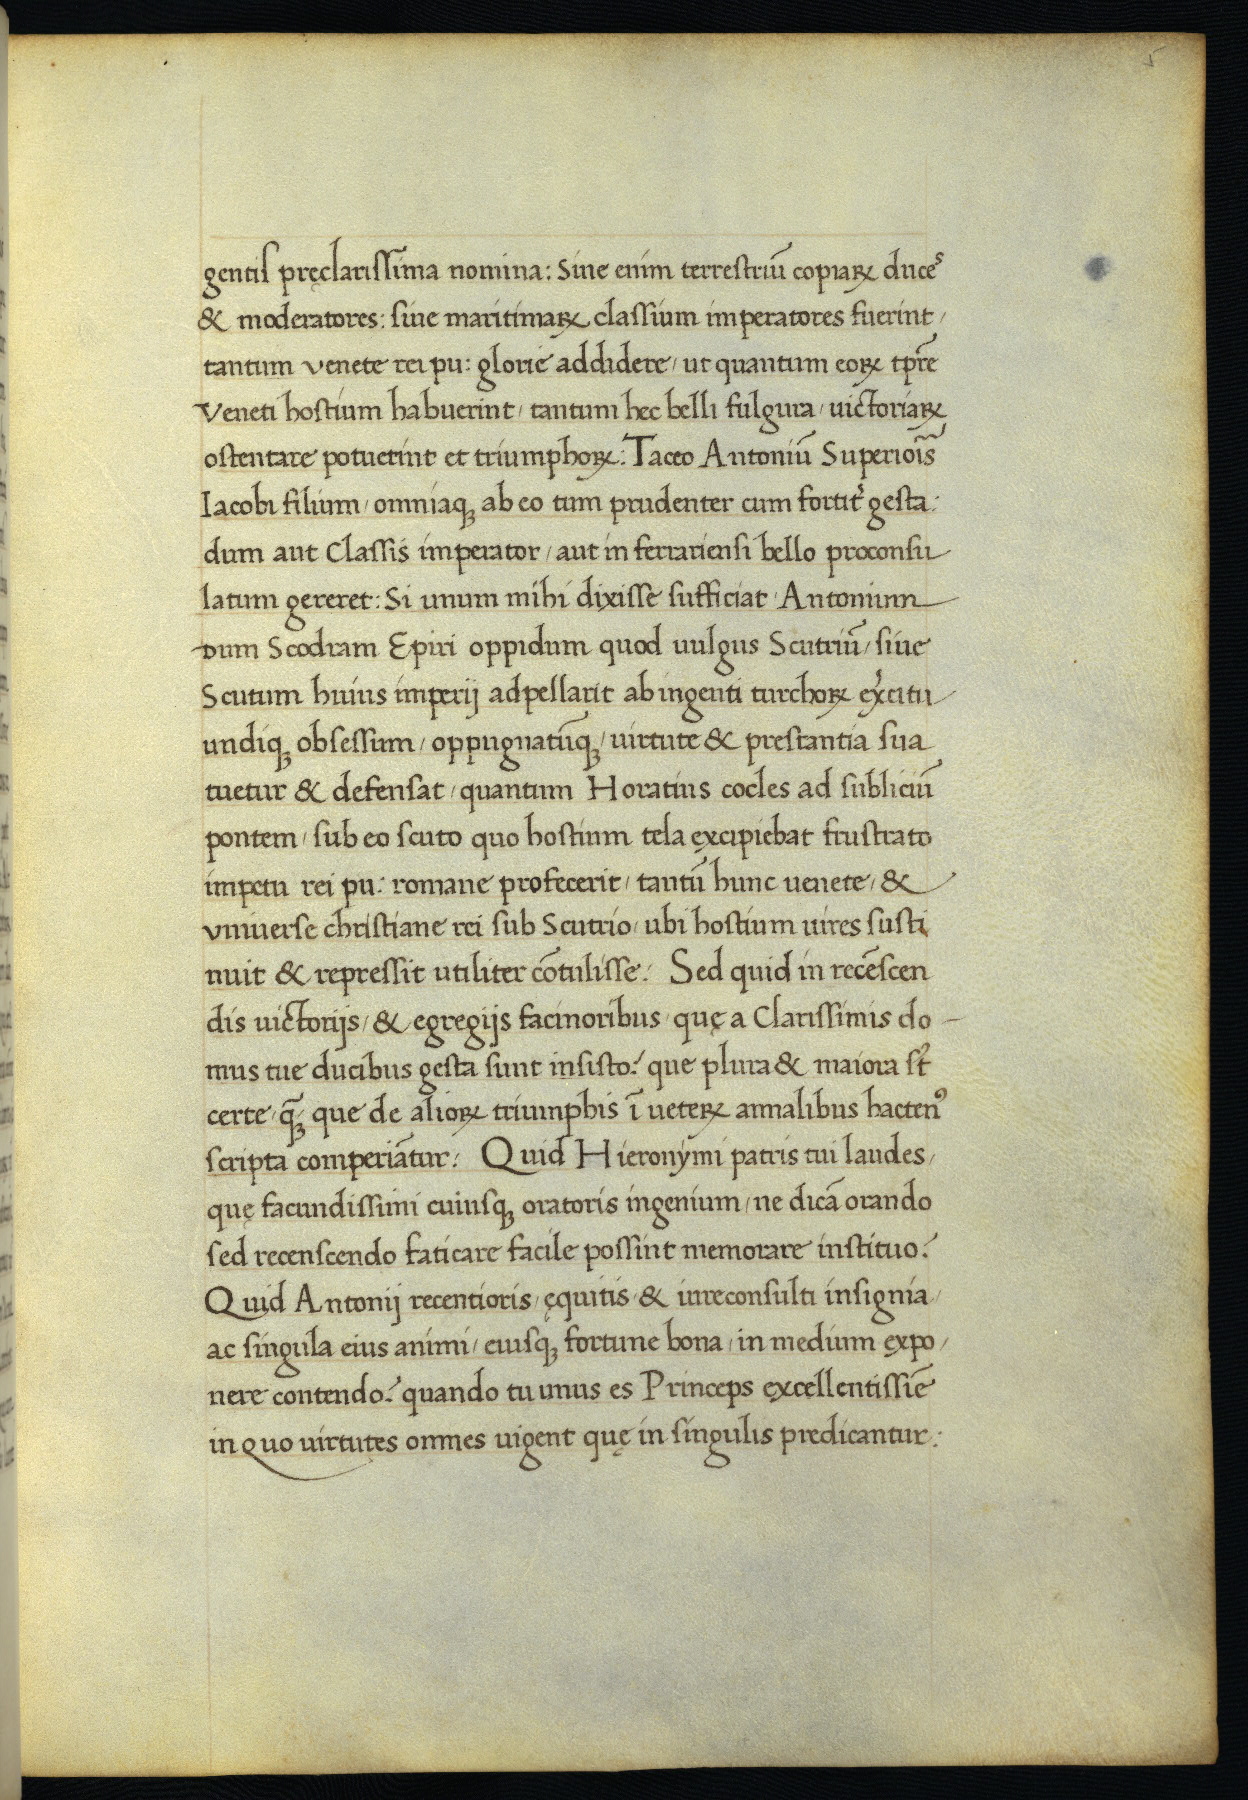 5
gentis pręclarissima nomina: Siue enim terrestriū copiaꝝ duces
& moderatores: siue maritimaꝝ classium imperatores fuerint/
tantum venete rei pu: glorie addidere/ ut quantum eoꝝ tp̄re
Veneti hostium habuerint/ tantum hec belli fulgura/ uictoriaꝝ
ostentare potuerint et triumphoꝝ: Taceo Antoniū Superioris
Iacobi filium/ omniaqꝫ ab eo tum prudenter cum fortit᷑ gesta:
dum aut Classis imperator/ aut in ferrariensi bello proconsu
latum gereret: Si unum mihi dixisse sufficiat Antonium
Dum Scodram Epiri oppidum quod uulgus Scutriū/ siue
Scutum huius imperij adpellarit ab ingenti turchoꝝ ex̓citu
undiqꝫ obsessum/ oppugnatūqꝫ/ uirtute & prestantia sua
tuetur & defensat/ quantum Horatius cocles ad subliciū
pontem/ sub eo scuto quo hostium tela excipiebat frustrato
impetu rei pu: romane profecerit/ tantū hunc uenete/ &
vniuerse christiane rei sub Scutrio/ ubi hostium uires susti
nuit & repressit utiliter cōtulisse: Sed quid in recēscen
dis uictorijs/ & egregijs facinoribus quę a Clarissimis do-
mus tue ducibus gesta sunt insisto? que plura & maiora st̄
certe qꝫ̄ que de alioꝝ triumphis ī ueteꝝ annalibus hactenꝰ
scripta comperiātur: Quid Hieronymi patris tui laudes/
quę facundissimi cuiusqꝫ oratoris ingenium/ ne dicā orando
sed recenscendo faticare facile possint memorare instituo?
Quid Antonij recentioris/ ęquitis & iureconsulti insignia/
ac singula eius animi/ eiusqꝫ fortune bona/ in medium expo/
nere contendo? quando tu unus es Princeps excellentissīe
in quo uirtutes omnes uigent quę in singulis predicantur: